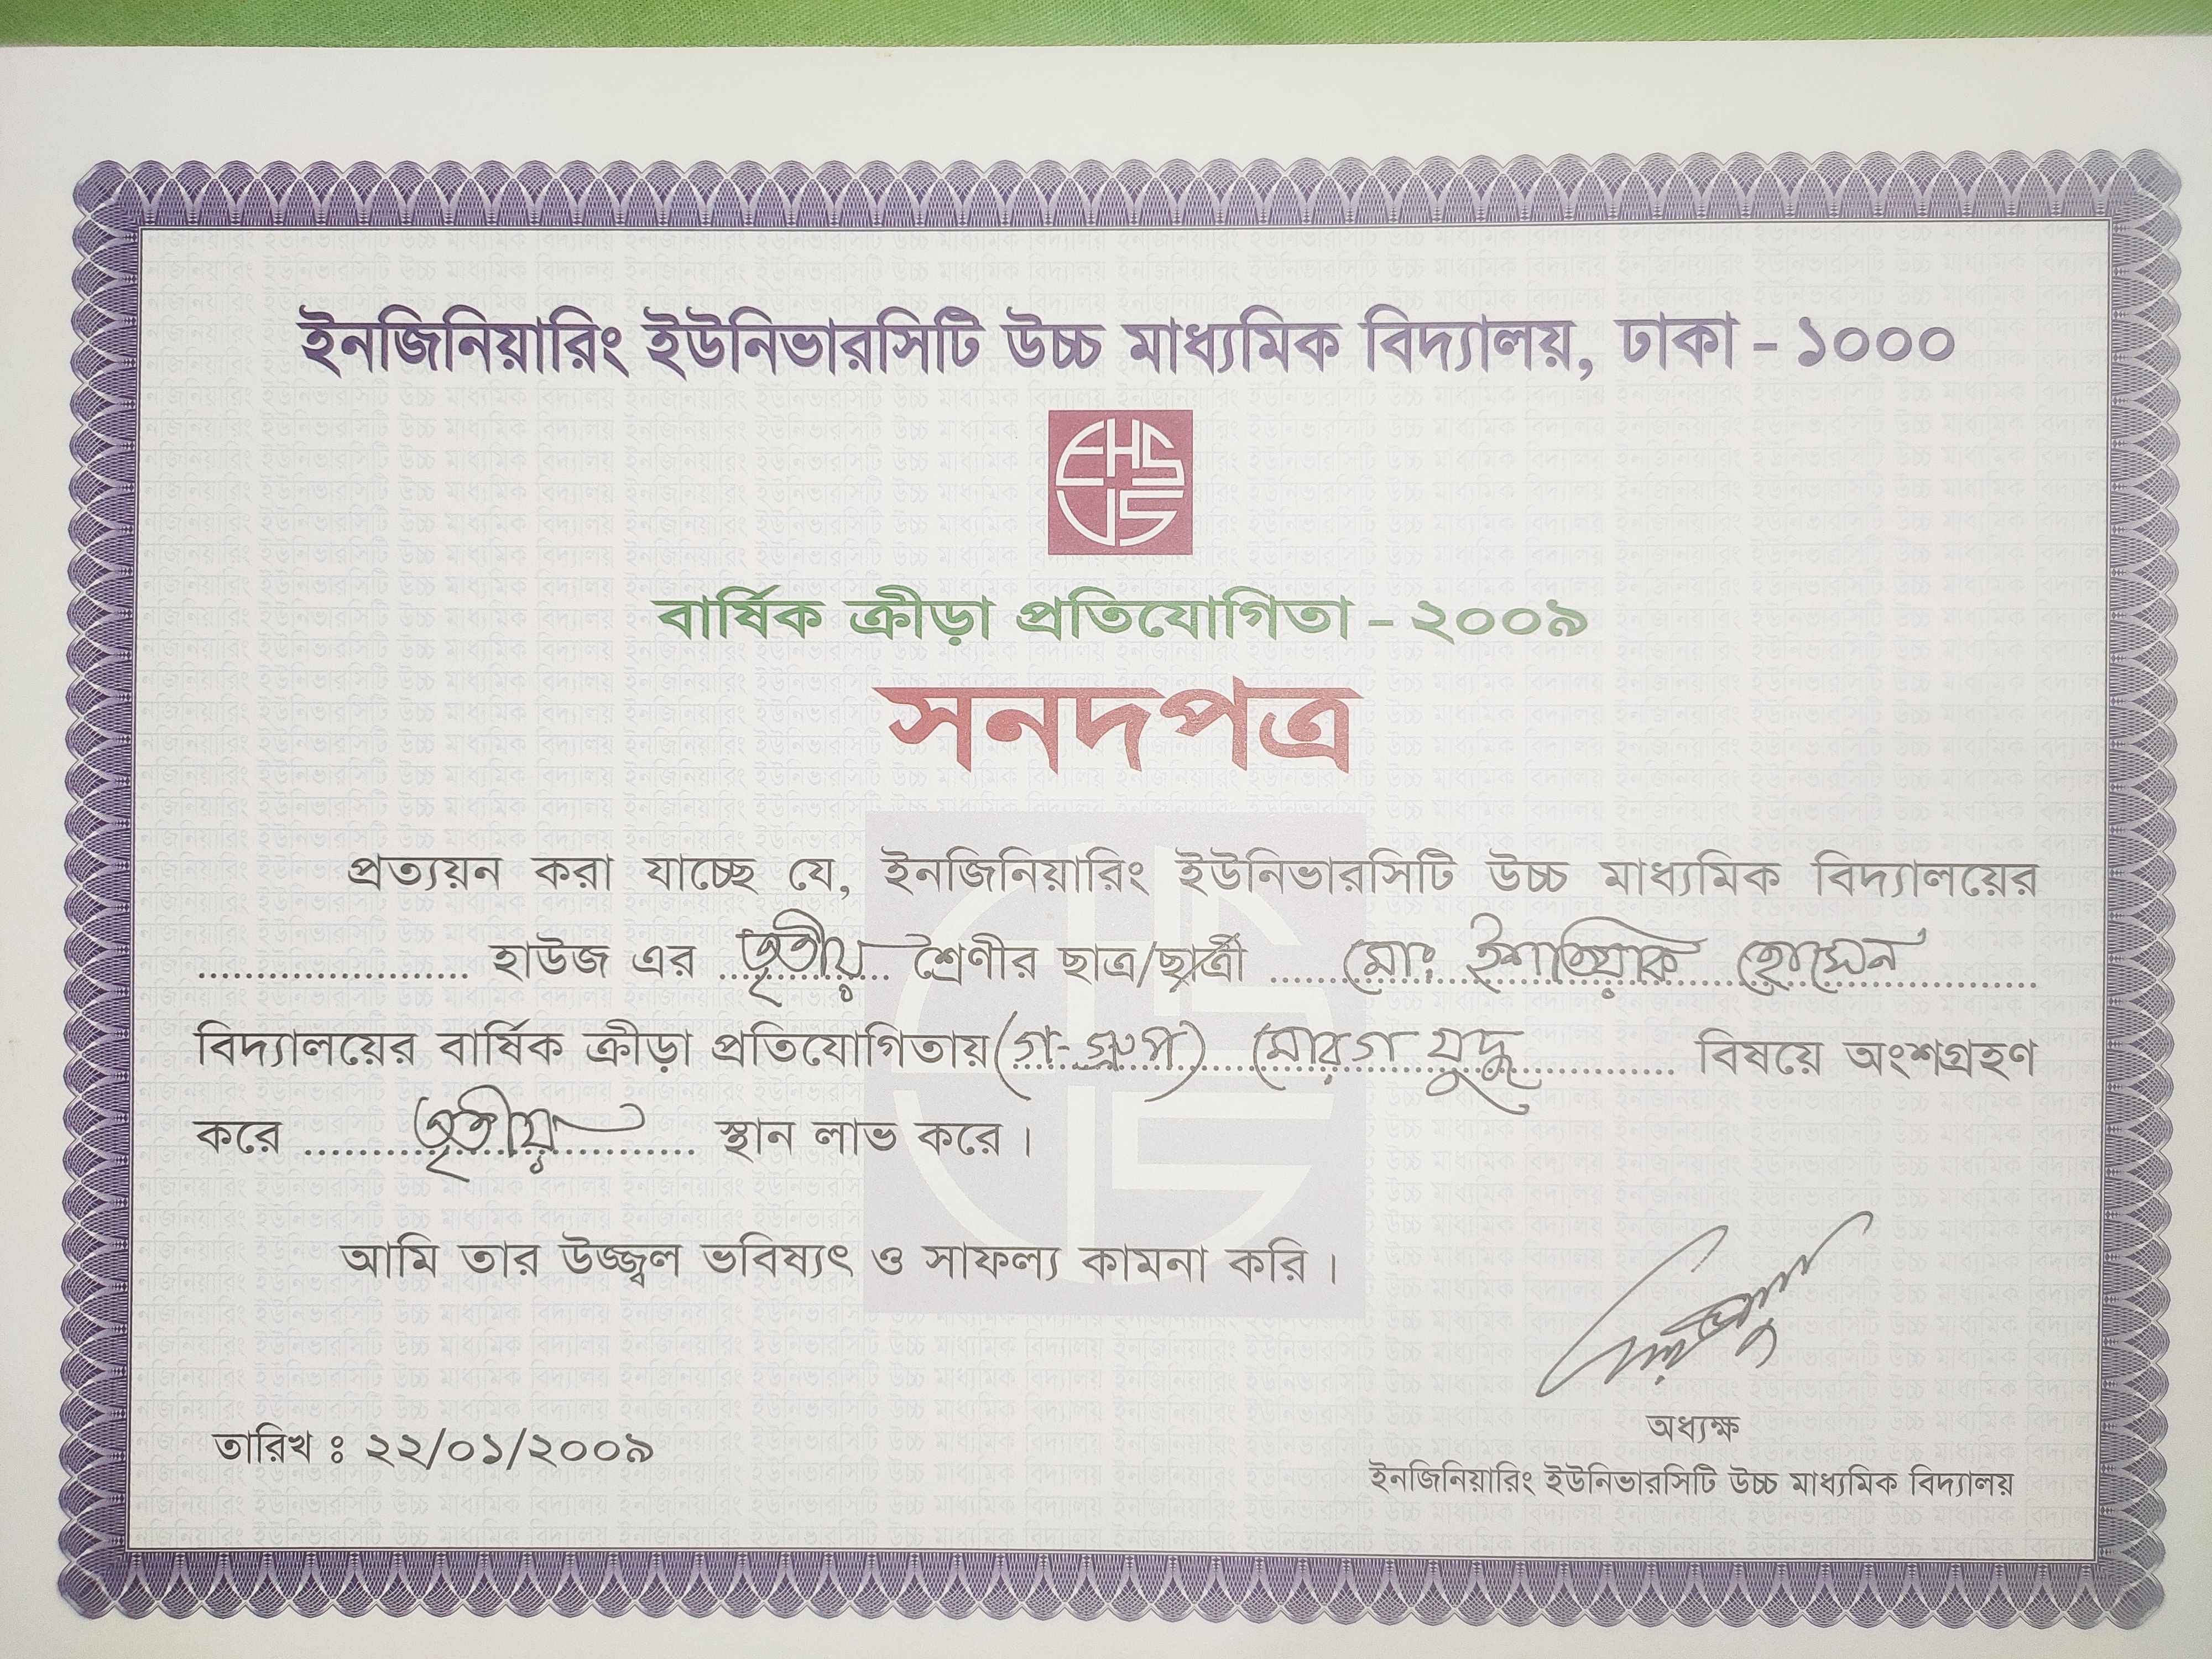 ইনজিনিয়ারিং ইউনিভারসিটি উচ্চ মাধ্যমিক বিদ্যালয়, ঢাকা - ১০০০
EHS
US
বার্ষিক ক্রীড়া প্রতিযোগিতা - ২০০৯
সনদপত্র
প্রত্যয়ন করা যাচ্ছে যে, ইনজিনিয়ারিং ইউনিভারসিটি উচ্চ মাধ্যমিক বিদ্যালয়ের
.................... হাউজ এর তৃতীয় শ্রেণীর ছাত্র/ছাত্রী মোঃ ইশতিয়াক হোসেন
বিদ্যালয়ের বার্ষিক ক্রীড়া প্রতিযোগিতায় (গ-গ্রুপ) মোরগ যুদ্ধ বিষয়ে অংশগ্রহণ
করে তৃতীয় স্থান লাভ করে।
আমি তার উজ্জ্বল ভবিষ্যৎ ও সাফল্য কামনা করি।
তারিখ ঃ ২২/০১/২০০৯
অধ্যক্ষ
ইনজিনিয়ারিং ইউনিভারসিটি উচ্চ মাধ্যমিক বিদ্যালয়